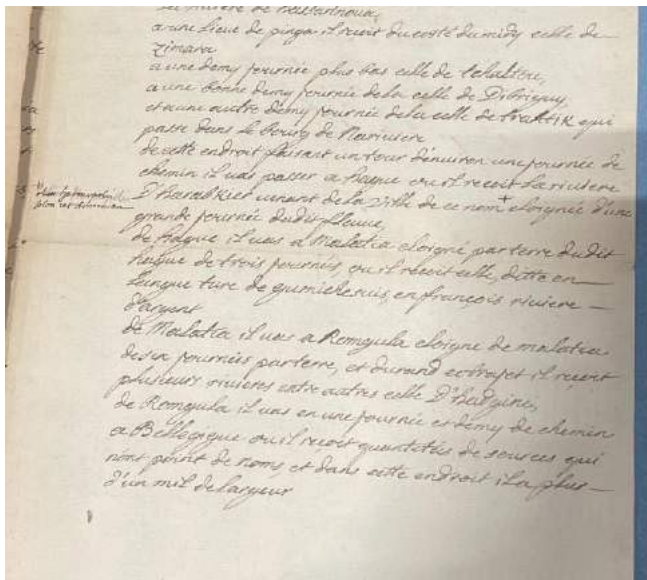 la riviere de
a une lieue de pinga il recoit du costé du midy celle de
zimara
a une demy journée plus bas celle de
a une bonne demy journée de la celle de Dibriguy,
et a une autre demy journée de la celle de qui
passe dans le bourg de
de cette endroit faisant un tour d'environ une journée de
chemin il vas passer a hague ou il recoit la riviere
D'harabkiet venant de la ville de ce nom + eloignée d'une
grande journée dudit fleuve,
de hague il vas a Malatia eloigné par terre dudit
hague de trois journés, ou il recoit celle, ditte en
Langue turc de gumichesuis, en françois riviere —
d'argent
de Malatia il vas a Romgula eloigne de malatia
de six journées par terre, et durand ce trajet il reçoit
plusieurs rivieres entre autres celle D'hadgini,
de Romgula il vas en une journée et demy de chemin
a ou il reçoit quantetés de sources qui
nont point de noms, et dans cette endroit il a plus —
d'un mil de largeur